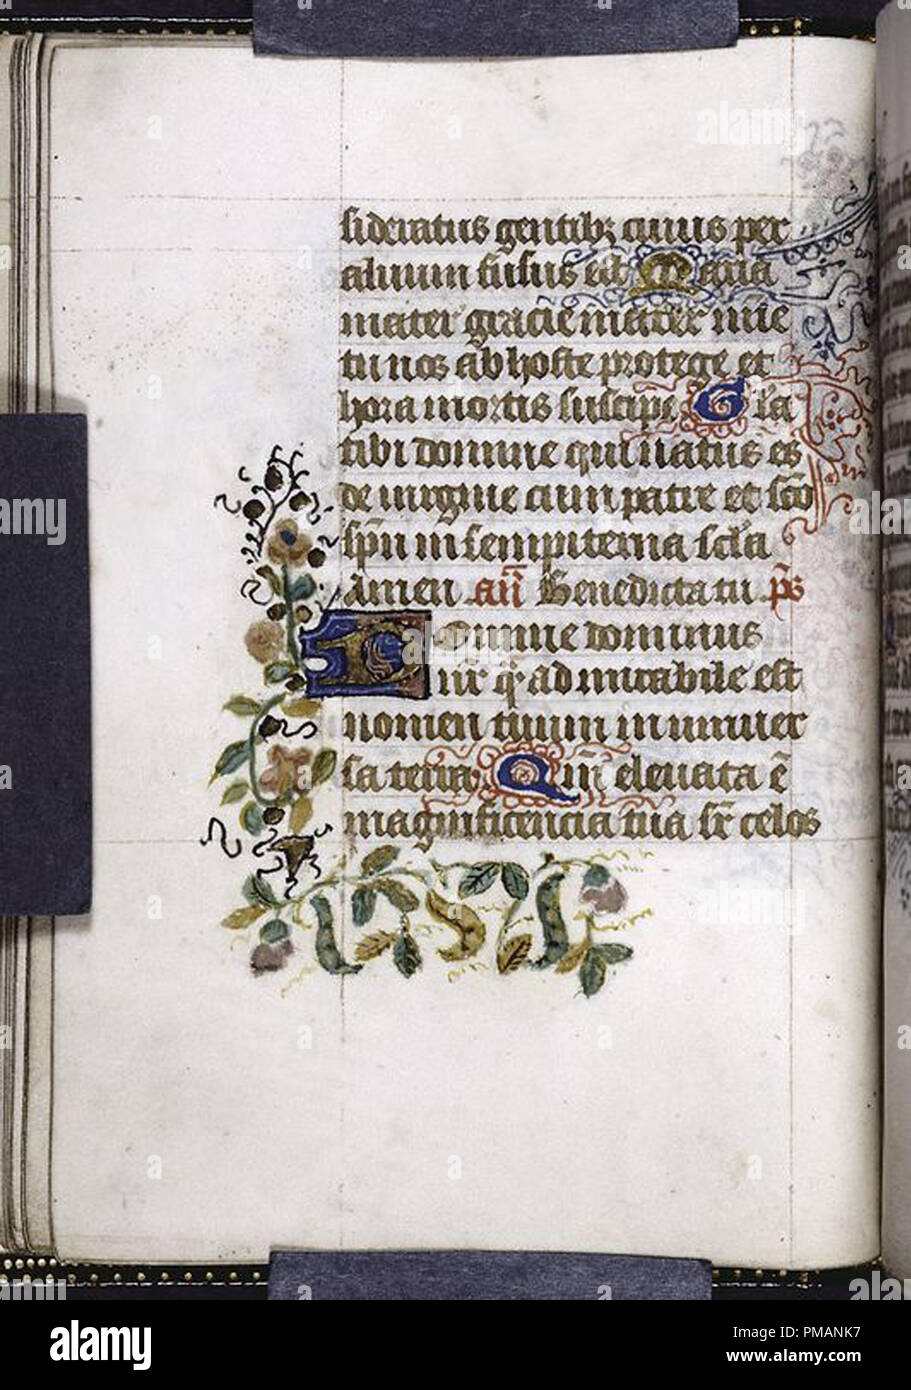 sideratus gentibꝫ cuius per
aluum fusus est Maria
mater gracie mater mie
tu nos ab hoste protege et
hora mortis suscipe Gla
tibi domine qui natus es
de uirgine cum patre et sc̄o
sp̄u in sempiterna sc̄la
Amen an̄ Benedicta tu p̄s
Domine dominus
nr̄ qͣ admirabile est
nomen tuum in uniuer
sa terra Qm̄ eleuata ē
magnificencia tua sr̄ celos
alamy
Image ID: PMANK7
www.alamy.com